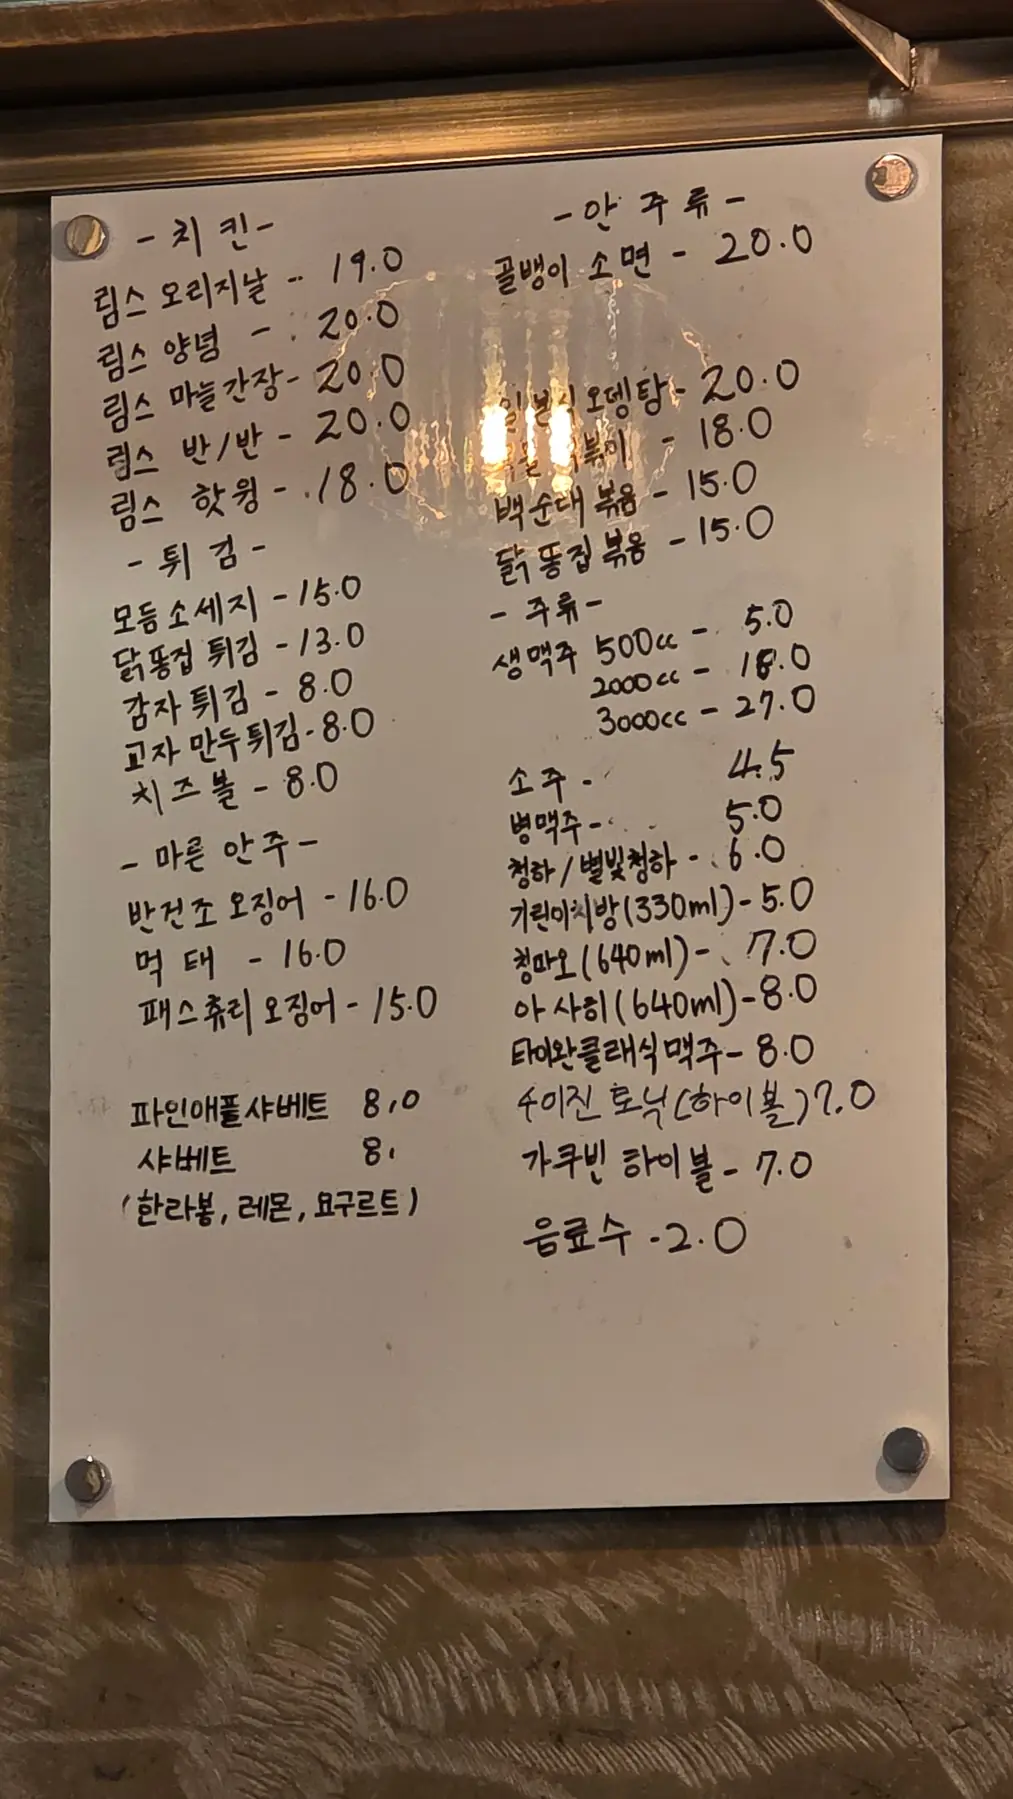 - 치킨 -
림스 오리지날 - 19.0
림스 양념 - 20.0
림스 마늘간장 - 20.0
림스 반/반 - 20.0
림스 핫윙 - 18.0
- 튀김 -
모듬소세지 - 15.0
닭똥집 튀김 - 13.0
감자 튀김 - 8.0
교자만두튀김 - 8.0
치즈볼 - 8.0
- 마른안주 -
반건조 오징어 - 16.0
먹태 - 16.0
패스츄리 오징어 - 15.0
파인애플샤베트 8.0
샤베트 8.
(한라봉, 레몬, 요구르트)
- 안주류 -
골뱅이 소면 - 20.0
오뎅탕 - 20.0
- 18.0
백순대 볶음 - 15.0
닭똥집 볶음 - 15.0
- 주류 -
생맥주 500cc - 5.0
2000cc - 18.0
3000cc - 27.0
소주 - 4.5
병맥주 - 5.0
청하/별빛청하 - 6.0
기린이치방(330ml) - 5.0
칭따오(640ml) - 7.0
아사히(640ml) - 8.0
타이완클래식맥주 - 8.0
토닉(하이볼) 7.0
가쿠빈 하이볼 - 7.0
음료수 - 2.0